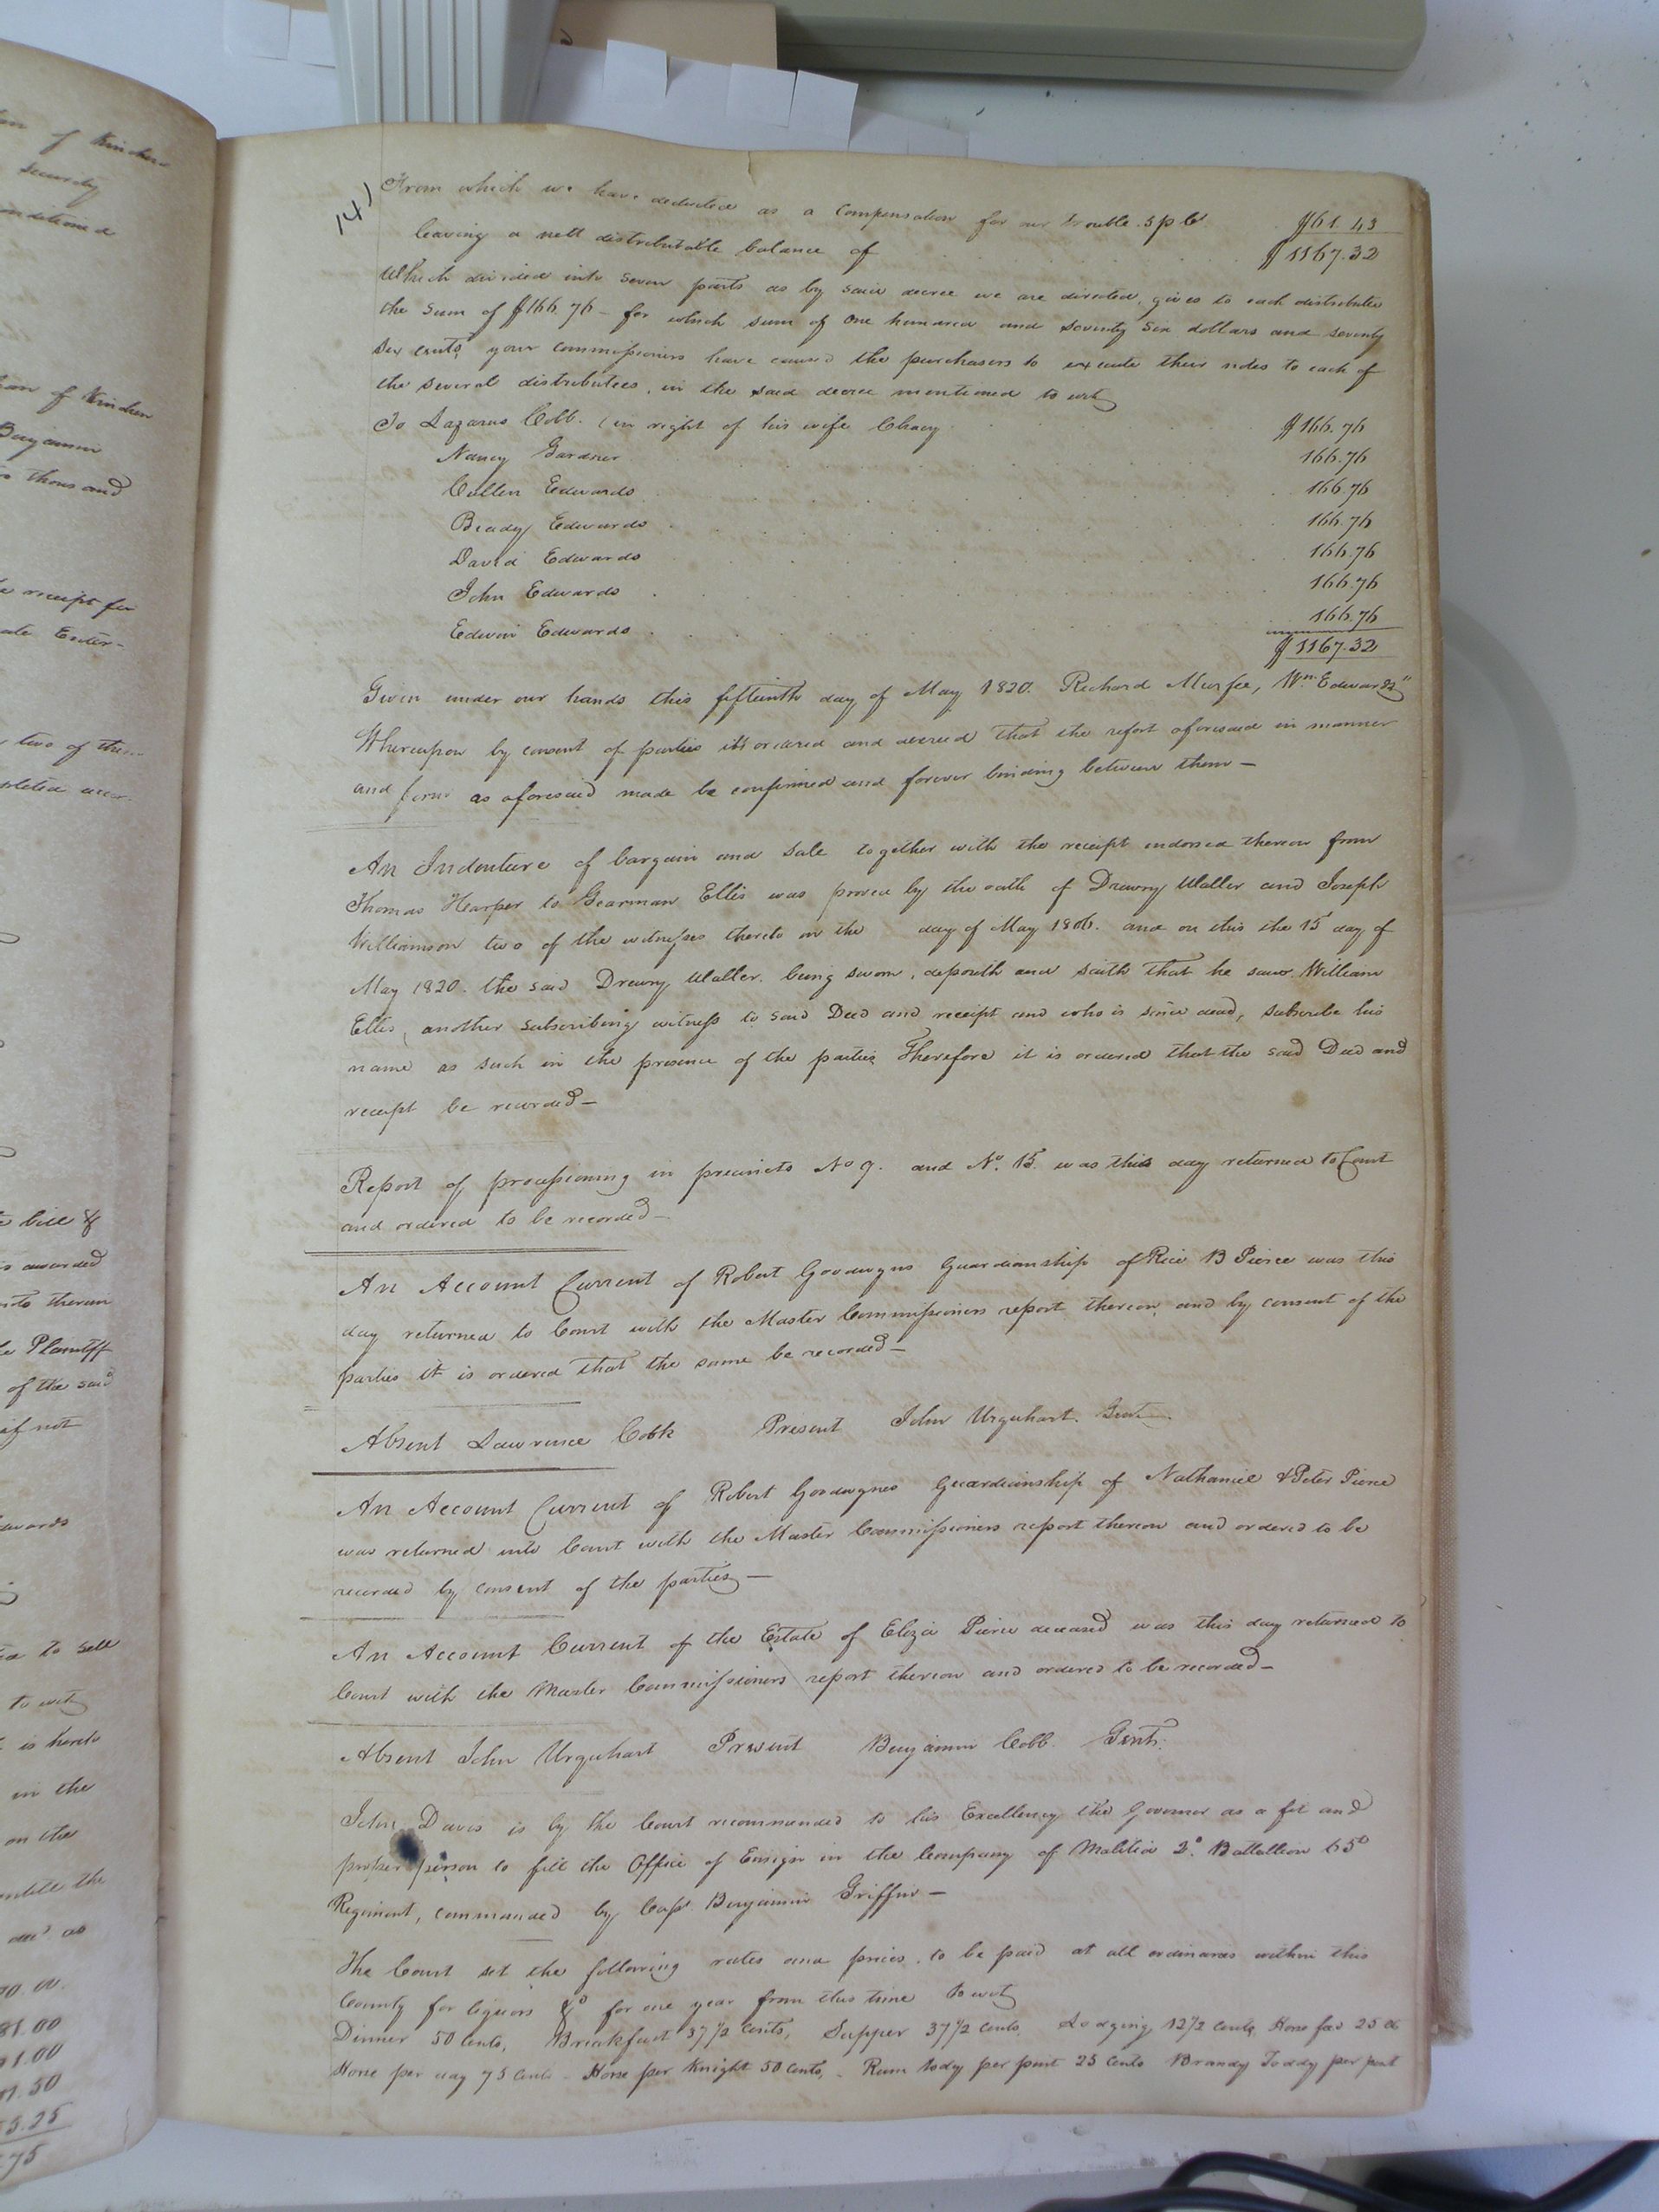 of Kinchen
security
conditioned
of Kinchen
Benjamin
thousand
receipt for
Exter-
two of them
bill &
awarded
thereon
Plaintiff
of the said
if not
to sell
to wit
is hereto
in the
on the
the
as
81.00
1.00
.50
5.25
75
141
From which we have deducted as a compensation for our trouble 5 p Ct $61.43
leaving a nett distributable balance of $1167.32
Which divided into seven parts as by said decree we are directed, gives to each distributee
the sum of $166.76 – for which sum of one hundred and seventy six dollars and seventy
six cents your commissioners have caused the purchasers to execute their notes to each of
the several distributees, in the said decree mentioned to wit
To Lazarus Cobb. (in right of his wife Chacy $166.76
Nancy Gardner 166.76
Cullen Edwards 166.76
Beady Edwards 166.76
David Edwards 166.76
John Edwards 166.76
Edwin Edwards 166.76
$1167.32
Given under our hands this fifteenth day of May 1820. Richard Murfee, Wm. Edwards"
Whereupon by consent of parties its ordered and decreed that the report aforesaid in manner
and form as aforesaid made be confirmed and forever binding between them –
An Indenture of bargain and sale together with the receipt endorsed thereon from
Thomas Harper to Gearman Ellis was proved by the oath of Drewry Waller and Joseph
Williamson two of the witnesses thereto on the day of May 1806. and on this the 15 day of
May 1820. the said Drewry Waller. being sworn, deposith and saith that he saw William
Ellis, another subscribing witness to said Deed and receipt and who is since dead, subscribe his
name as such in the presence of the parties Therefore it is ordered that the said Deed and
receipt be recorded –
Report of processioning in precincts No 9. and No. 15. was this day returned to Court
and ordered to be recorded –
An Account Current of Robert Goodwyns Guardianship of Rice B Pierce was this
day returned to Court with the Master Commissioners report thereon, and by consent of the
parties it is ordered that the same be recorded –
Absent Lawrence Cook Present John Urquhart. Gent.
An Account Current of Robert Goodwynes Guardianship of Nathaniel & Peter Pierce
was returned into Court with the Master Commissioners report thereon and ordered to be
recorded by consent of the parties –
An Account Current of the Estate of Eliza Pierce deceased was this day returned to
Court with the Master Commissioners report thereon and ordered to be recorded –
Absent John Urquhart Present Benjamin Cobb. Gent.
John Davis is by the Court recommended to his Excellency the Governor as a fit and
proper person to fill the Office of Ensign in the Company of Malitia 2d. Battallion 65th
Regiment, commanded by Capt. Benjamin Griffin –
The Court set the following rates and prices, to be paid at all ordinaries within this
County for liquors &c for one year from this time to wit
Dinner 50 Cents, Breakfast 37 1/2 Cents, Supper 37 1/2 Cents, Lodging 12 1/2 Cents, Horse feed 25 cts
Horse per day 75 Cents – Horse per Knight 50 Cents, – Rum tody per pint 25 Cents Brandy Toddy per pint